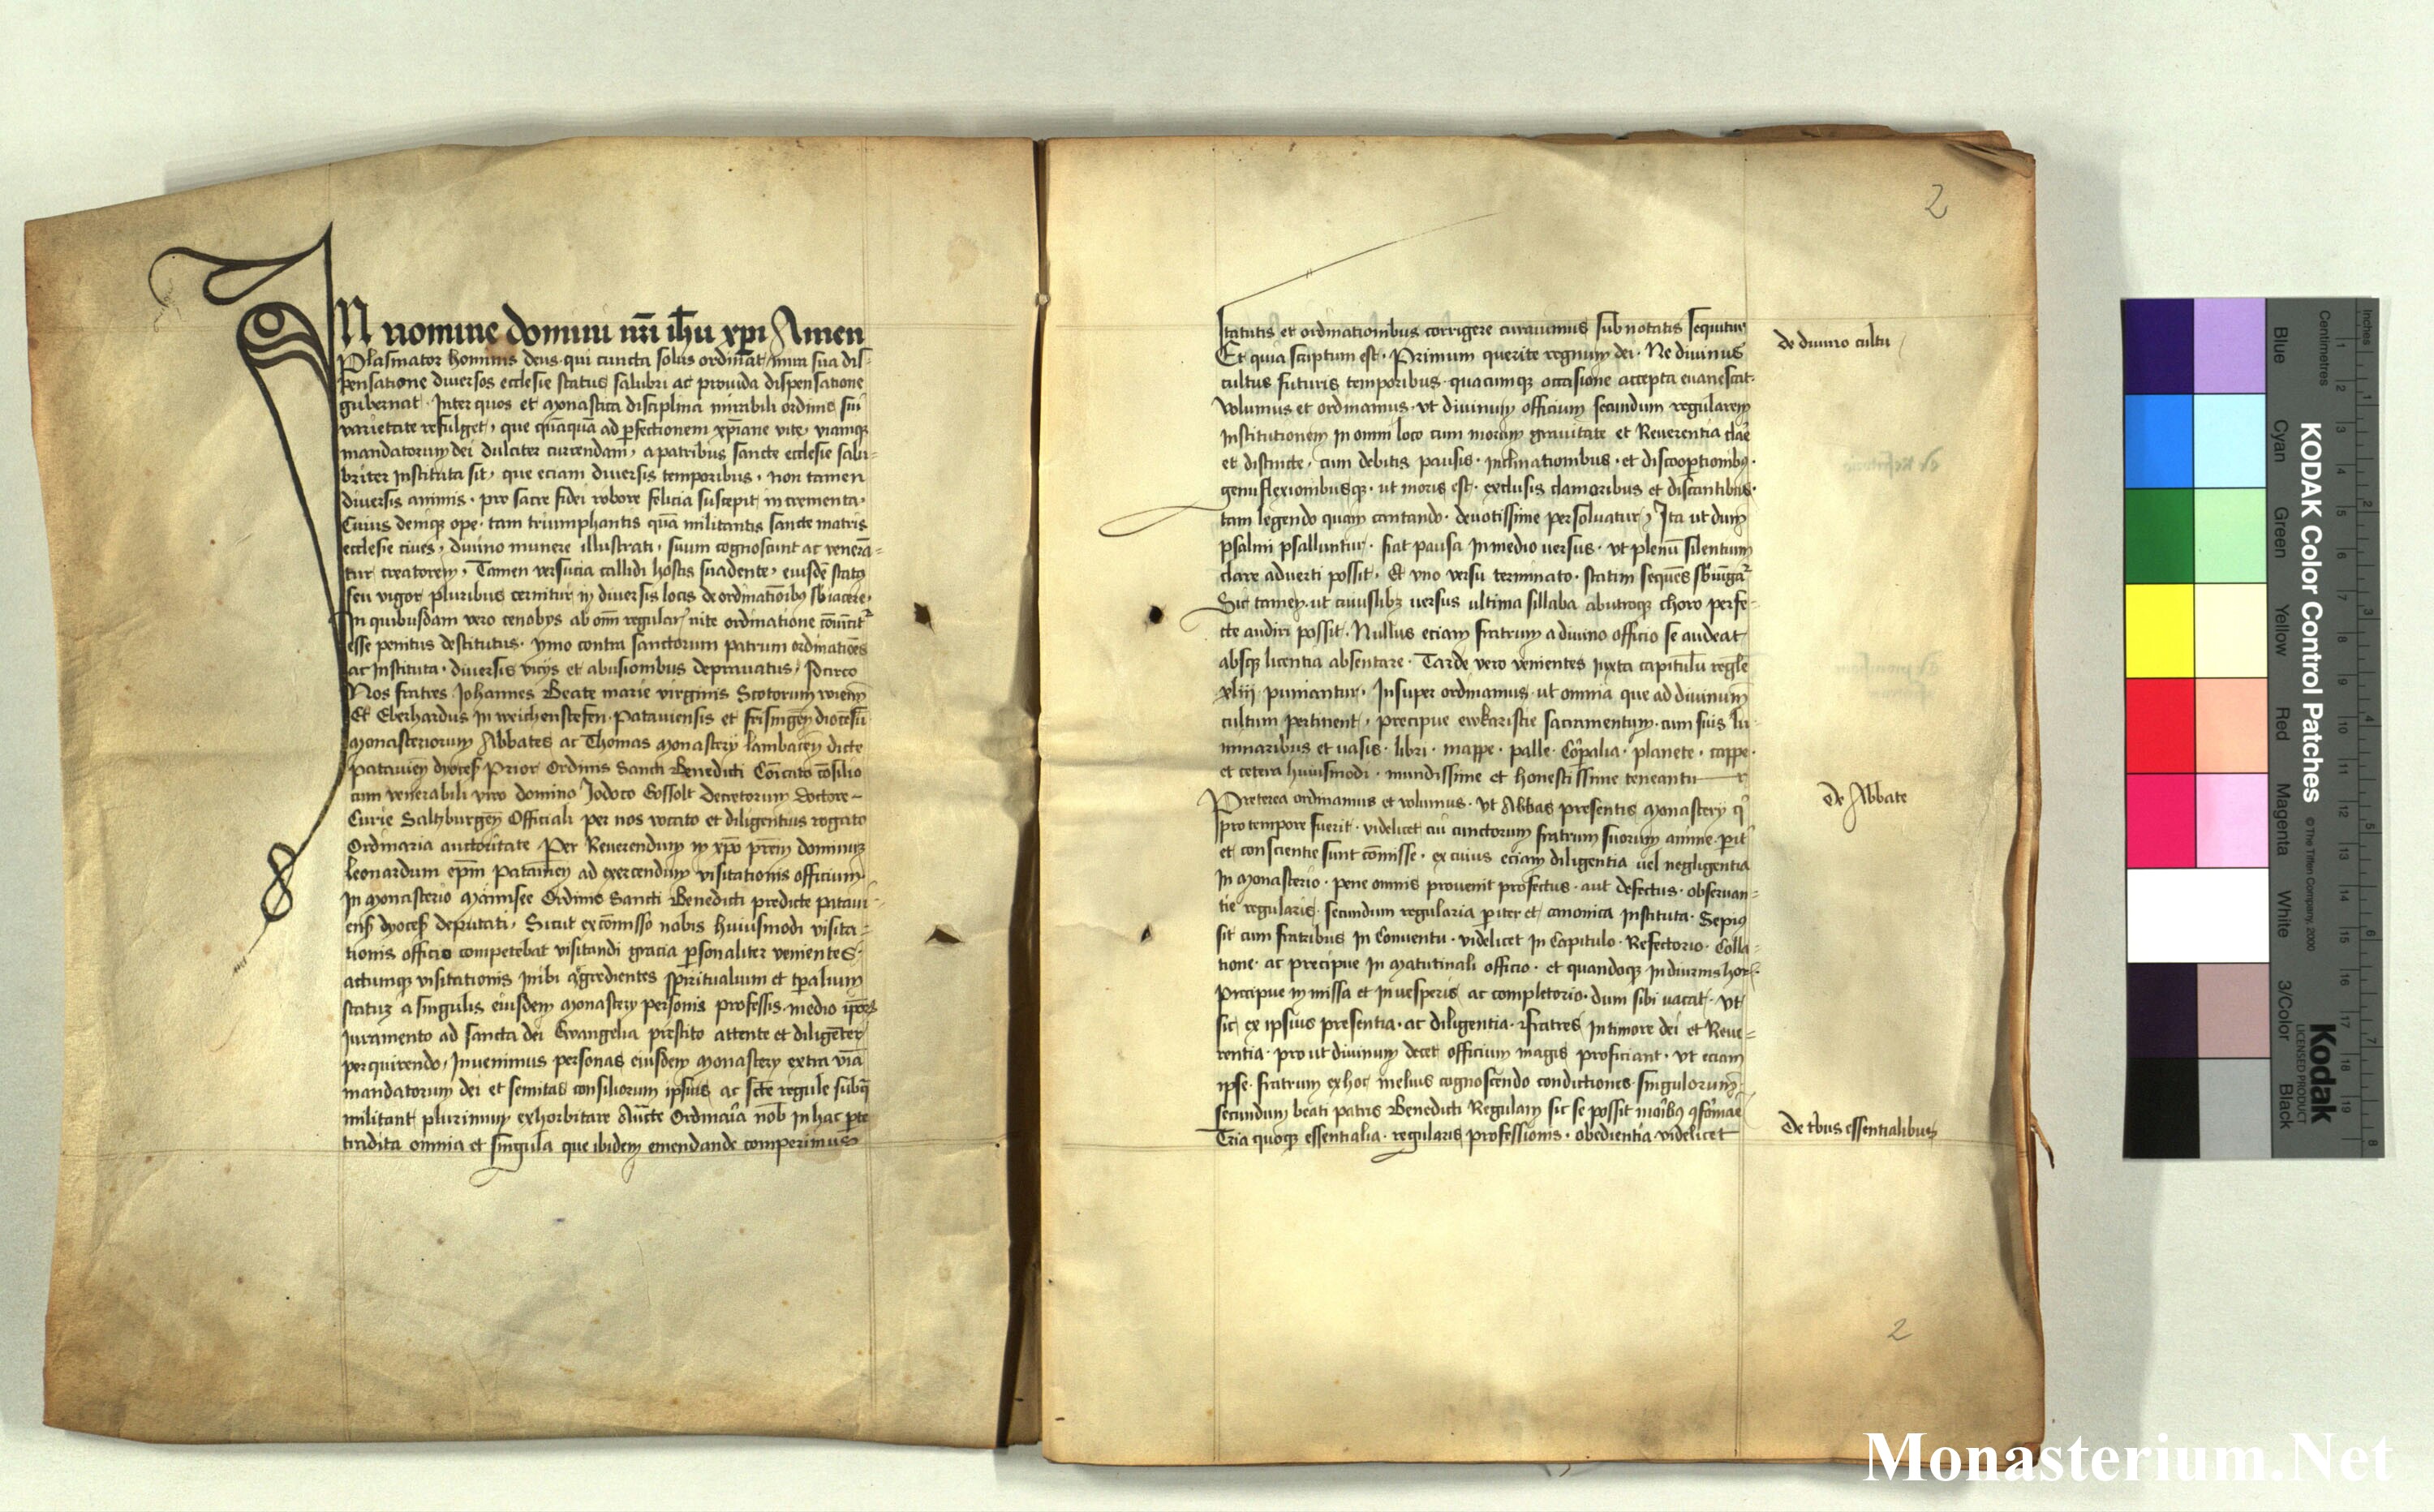 IN nomine domini nr̄i ih̄u xp̄i Amen
Plasmator hominis deus qui cuncta solus ordinat, mira sua dis-
pensatione diuersos ecclesie status salubri ac prouida dispensatione
gubernat. Inter quos et monastica disciplina mirabili ordinis sui
varietate refulget, que qūaquā ad ꝑfectionem xp̄iane vite, viamqꝫ
mandatorum dei dulciter currendam, a patribus sancte ecclesie salu-
briter Instituta sit, que eciam diuersis temporibus, non tamen
diuersis animis, pro sacre fidei robore felicia suscepit incrementa.
Cuius deniqꝫ ope, tam triumphantis quā militantis sancte matris
ecclesie ciues, diuino munere illustrati, suum cognoscunt ac venerā-
tur creatorem, Tamen versucia callidi hostis suadente, eiusdē status
seu vigor pluribus cernitur in diuersis locis deordinatōibꝰ sb̄iacere,
In quibusdam vero cenobys ab omī regular̄ vite ordinatione
esse penitus destitutus, ymo contra sanctorum patrum ordinatiōes
ac Instituta, diuersis vicys et abusionibus deprauatus, Idcirco
Nos fratres Johannes Beate marie virginis Scotorum wienn̄
Et Eberhardus In weichenstefen, Patauiensis et frisingen̄ diocesū
monasteriorum Abbates ac Thomas monastery lambacen̄ dicte
patauien̄ dyoceſ Prior Ordinis Sancti Benedicti Cōicato cōsilio
cum venerabili viro domino Jodoco Gossolt decretorum doctore
Curie Saltzburgen̄ Officiali per nos vocato et diligentius rogato
Ordinaria auctoritate Per Reuerendum in xp̄o prem̄ dominum
leonardum ep̄m patauien̄ ad exercendum visitationis officium
In monasterio Mannsee Ordinis Sancti Benedicti predicte pataui-
enſ dyoceſ deputati, Sicut ex cōmisso nobis huiusmodi visita-
tionis officio competebat visitandi gracia ꝑsonaliter venientes,
actumqꝫ visitationis Inibi aggredientes spiritualium et tp̄alium
statum a singulis eiusdem monastery personis professis, medio ip̄oꝝ
Iuramento ad sancta dei Ewangelia prestito attente et diligēter
perquirendo, Inuenimus personas eiusdem monastery extra viā
mandatorum dei et semitas consiliorum ipsius, ac scē regule sub q̄
militant plurimum exhorbitare Auct̄e Ordinar̄ia nob̄ In hac ꝑte
tradita omnia et singula que ibidem emendande comperimus
2
statutis et ordinationibus corrigere curauimus subnotatis sequitur
de diuino cultu
Et quia scriptum est, Primum querite regnum dei, Ne diuinus
cultus futuris temporibus quacumqꝫ occasione accepta euanescat,
Volumus et ordinamus, vt diuinum officium secundum regularem
Institutionem In omni loco cum morum grauitate et Reuerentia clar̄e
et distincte, cum debitis pausis, inclinationibus, et discooꝑtionibꝰ,
genuflexionibusqꝫ, ut moris est, exclusis clamoribus et discantibus,
tam legendo quam cantando, deuotissime persoluatur, Ita ut dum
psalmi psalluntur, fiat pausa In medio uersus, vt plenū silentium
clare aduerti possit, Et vno versu terminato, statim sequēs sb̄iungat̄
Sic tamen ut cuiuslibꝫ uersus ultima sillaba ab utroqꝫ choro perfe-
cte audiri possit, Nullus eciam fratrum a diuino officio se audeat
absqꝫ licentia absentare, Tarde vero venientes Iuxta capitulū regl̄e
xliii puniantur, Insuper ordinamus ut omnia que ad diuinum
cultum pertinent, precipue ewkaristie sacramentum cum suis lu-
minaribus et uasis, libri, mappe, palle, Corꝑalia, planete, cappe,
et cetera huiusmodi, mundissime et honestissime teneantur
de Abbate
Preterea ordinamus et volumus, vt Abbas presentis monastery q̄
pro tempore fuerit, videlicet cui cunctorum fratrum suorum anime pit̄
et conscientie sunt cōmisse, ex cuius eciam diligentia uel negligentia
In monasterio, pene omnis prouenit profectus, aut defectus, obseruan-
tie regularis, secundum regularia ꝑiter et canonica Instituta, Sepius
sit cum fratribus In Conuentu, videlicet In Capitulo, Refectorio, Colla-
tione, ac precipue In matutinali officio, et quandoqꝫ In diurnis hor̄,
precipue in missa et In uesperis ac completorio, dum sibi uacat, vt
sic ex ipsius presentia, ac diligentia, fratres In timore dei et Reue-
rentia, prout diuinum decet officium magis proficiant, vt eciam
ipse fratrum ex hoc melius cognoscendo condictiones singulorum,
secundum beati patris Benedicti Regulam sic se possit
De tribus essentialibus
Tria quoqꝫ essentialia, regularis professionis, obedientia videlicet
2
KODAK Color Control Patches
© The Tiffen Company, 2000
Kodak
LICENSED PRODUCT
Blue
Cyan
Green
Yellow
Red
Magenta
White
3/Color
Black
Centimetres
Inches
Monasterium.Net